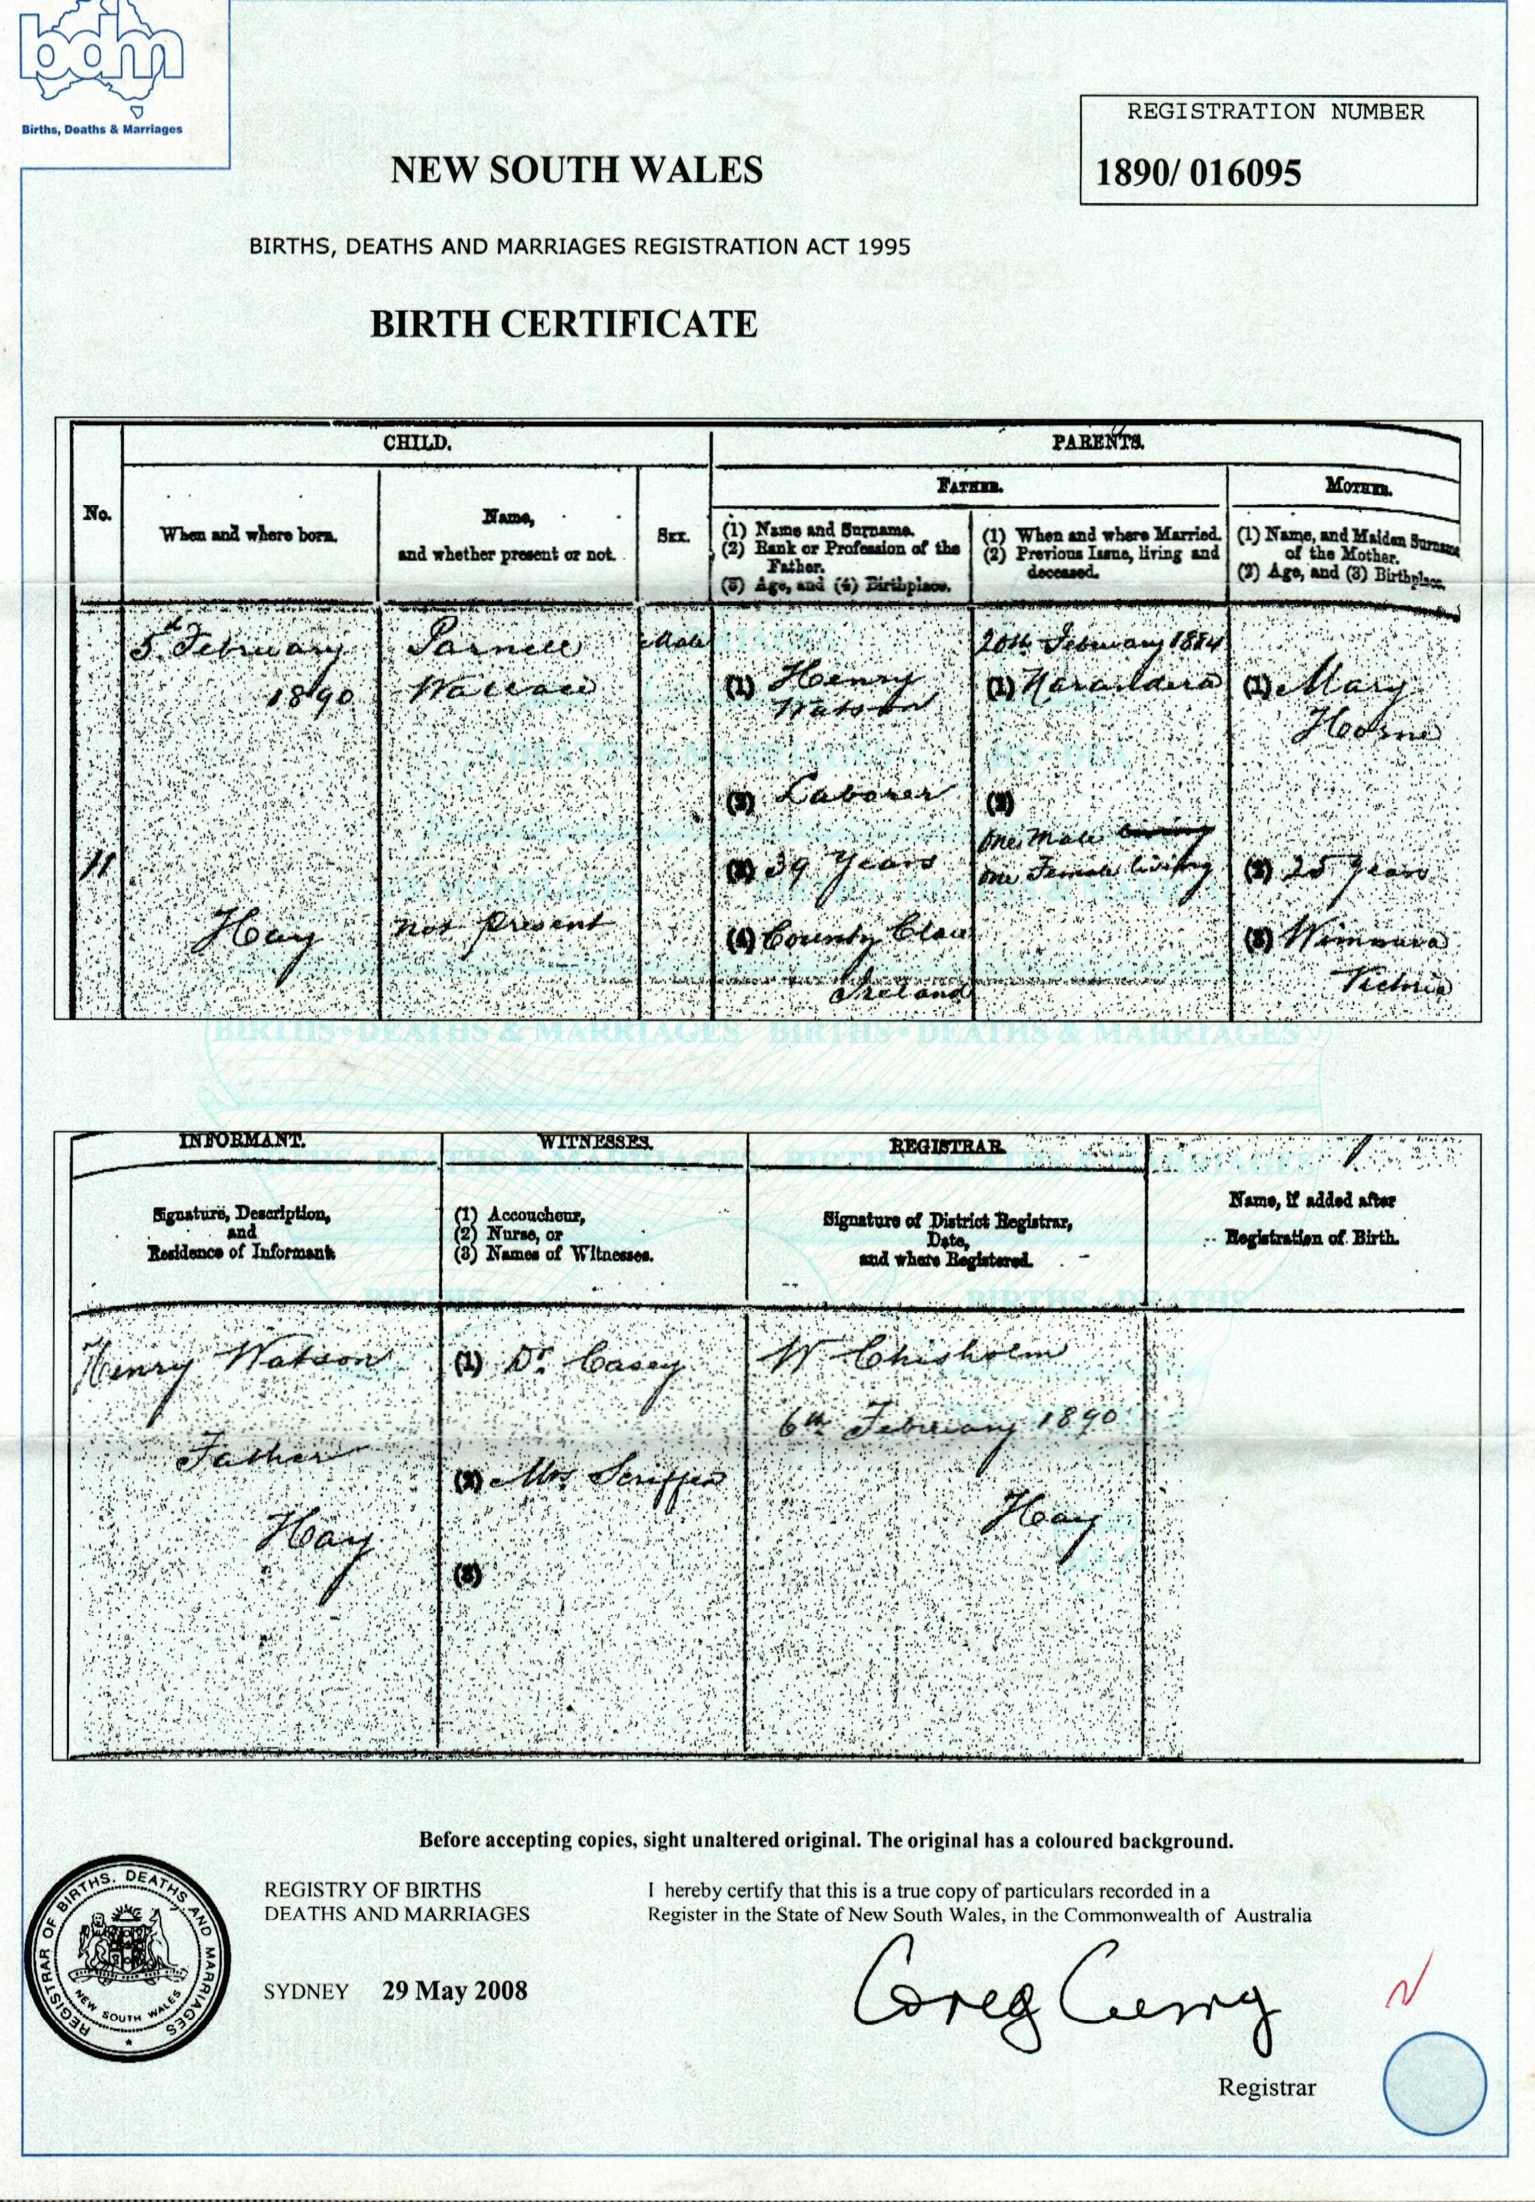 bdm
Births, Deaths & Marriages
REGISTRATION NUMBER
1890/ 016095
NEW SOUTH WALES
BIRTHS, DEATHS AND MARRIAGES REGISTRATION ACT 1995
BIRTH CERTIFICATE
CHILD.
PARENTS.
No.
When and where born.
Name,
and whether present or not.
SEX.
FATHER.
MOTHER.
(1) Name and Surname.
(2) Rank or Profession of the
Father.
(3) Age, and (4) Birthplace.
(1) When and where Married.
(2) Previous Issue, living and
deceased.
(1) Name, and Maiden Surname
of the Mother.
(2) Age, and (3) Birthplace.
11
5th February
1890
Hay
Parnell
Wallace
not present
Male
(1) Henry
Watson
(2) Laborer
(3) 39 years
(4) County Clare
Ireland
20th February 1884
(1) Narandera
(2)
one male living
one Female living
(1) Mary
Horne
(2) 25 years
(3) Wimmera
Victoria
INFORMANT.
WITNESSES.
REGISTRAR.
Signature, Description,
and
Residence of Informant.
(1) Accoucheur,
(2) Nurse, or
(3) Names of Witnesses.
Signature of District Registrar,
Date,
and where Registered.
Name, if added after
Registration of Birth.
Henry Watson
Father
Hay
(1) Dr. Casey
(2) Mrs
(3)
W Chisholm
6th February 1890
Hay
Before accepting copies, sight unaltered original. The original has a coloured background.
REGISTRAR OF BIRTHS, DEATHS AND MARRIAGES
NEW SOUTH WALES
REGISTRY OF BIRTHS
DEATHS AND MARRIAGES
SYDNEY 29 May 2008
I hereby certify that this is a true copy of particulars recorded in a
Register in the State of New South Wales, in the Commonwealth of Australia
Greg Curry
Registrar
BIRTHS · DEATHS & MARRIAGES BIRTHS · DEATHS & MARRIAGES